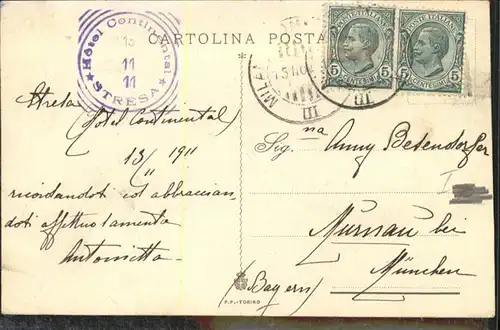 CARTOLINA POSTA
Hôtel Continental
13
11
11
★ STRESA ★
MILAN
15 NO
III
III
POSTE ITALIANE
5 CENTESIMI 5
POSTE ITALIANE
5 CENTESIMI 5
Stresa
(Hotel Continental)
13/11 1911
ricordandoti ed abbraccian-
doti affettuosamente
Antonietta
Sig.na Anny Betendorfer
Murnau bei
München
(Bayern)
P.P.-TORINO